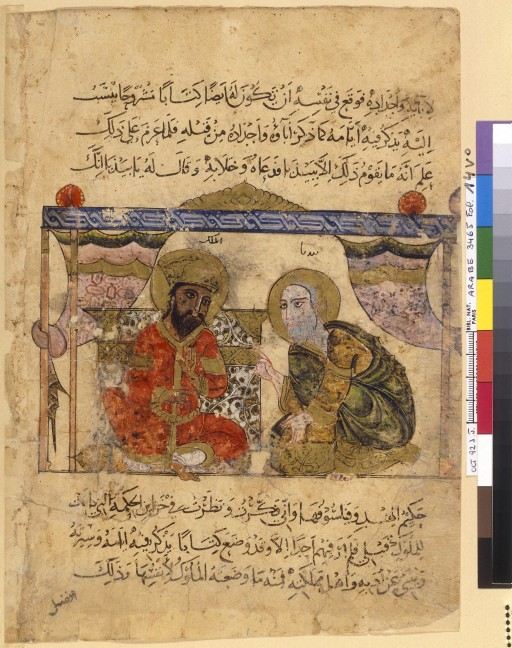 لابايه واجداده فوقع في نفسه ان يكون له ايضا كتابا مشروحا ينسب
اليه يذكر فيه ايامه كما ذكر اباوه واجداده من قبله فلما عزم على ذلك
علم انه ما يقوم بذلك الا بيدبا فدعاه وخلا به وقال له يا بيدبا انك
الملك
بيدبا
حكيم الهند وفيلسوفها واني فكرت ونظرت في خزاين الحكمة التي كانت
للملوك قبلي فلم ار فيهم احدا الا وقد وضع كتابا يذكر فيه ايامه وسيرته
وينبي عن ادبه واهل مملكته فمنه ما وضعته الملوك لانفسها وذلك
لفضل
BIBL. NAT.
PARIS
ARABE 3465 Fol.